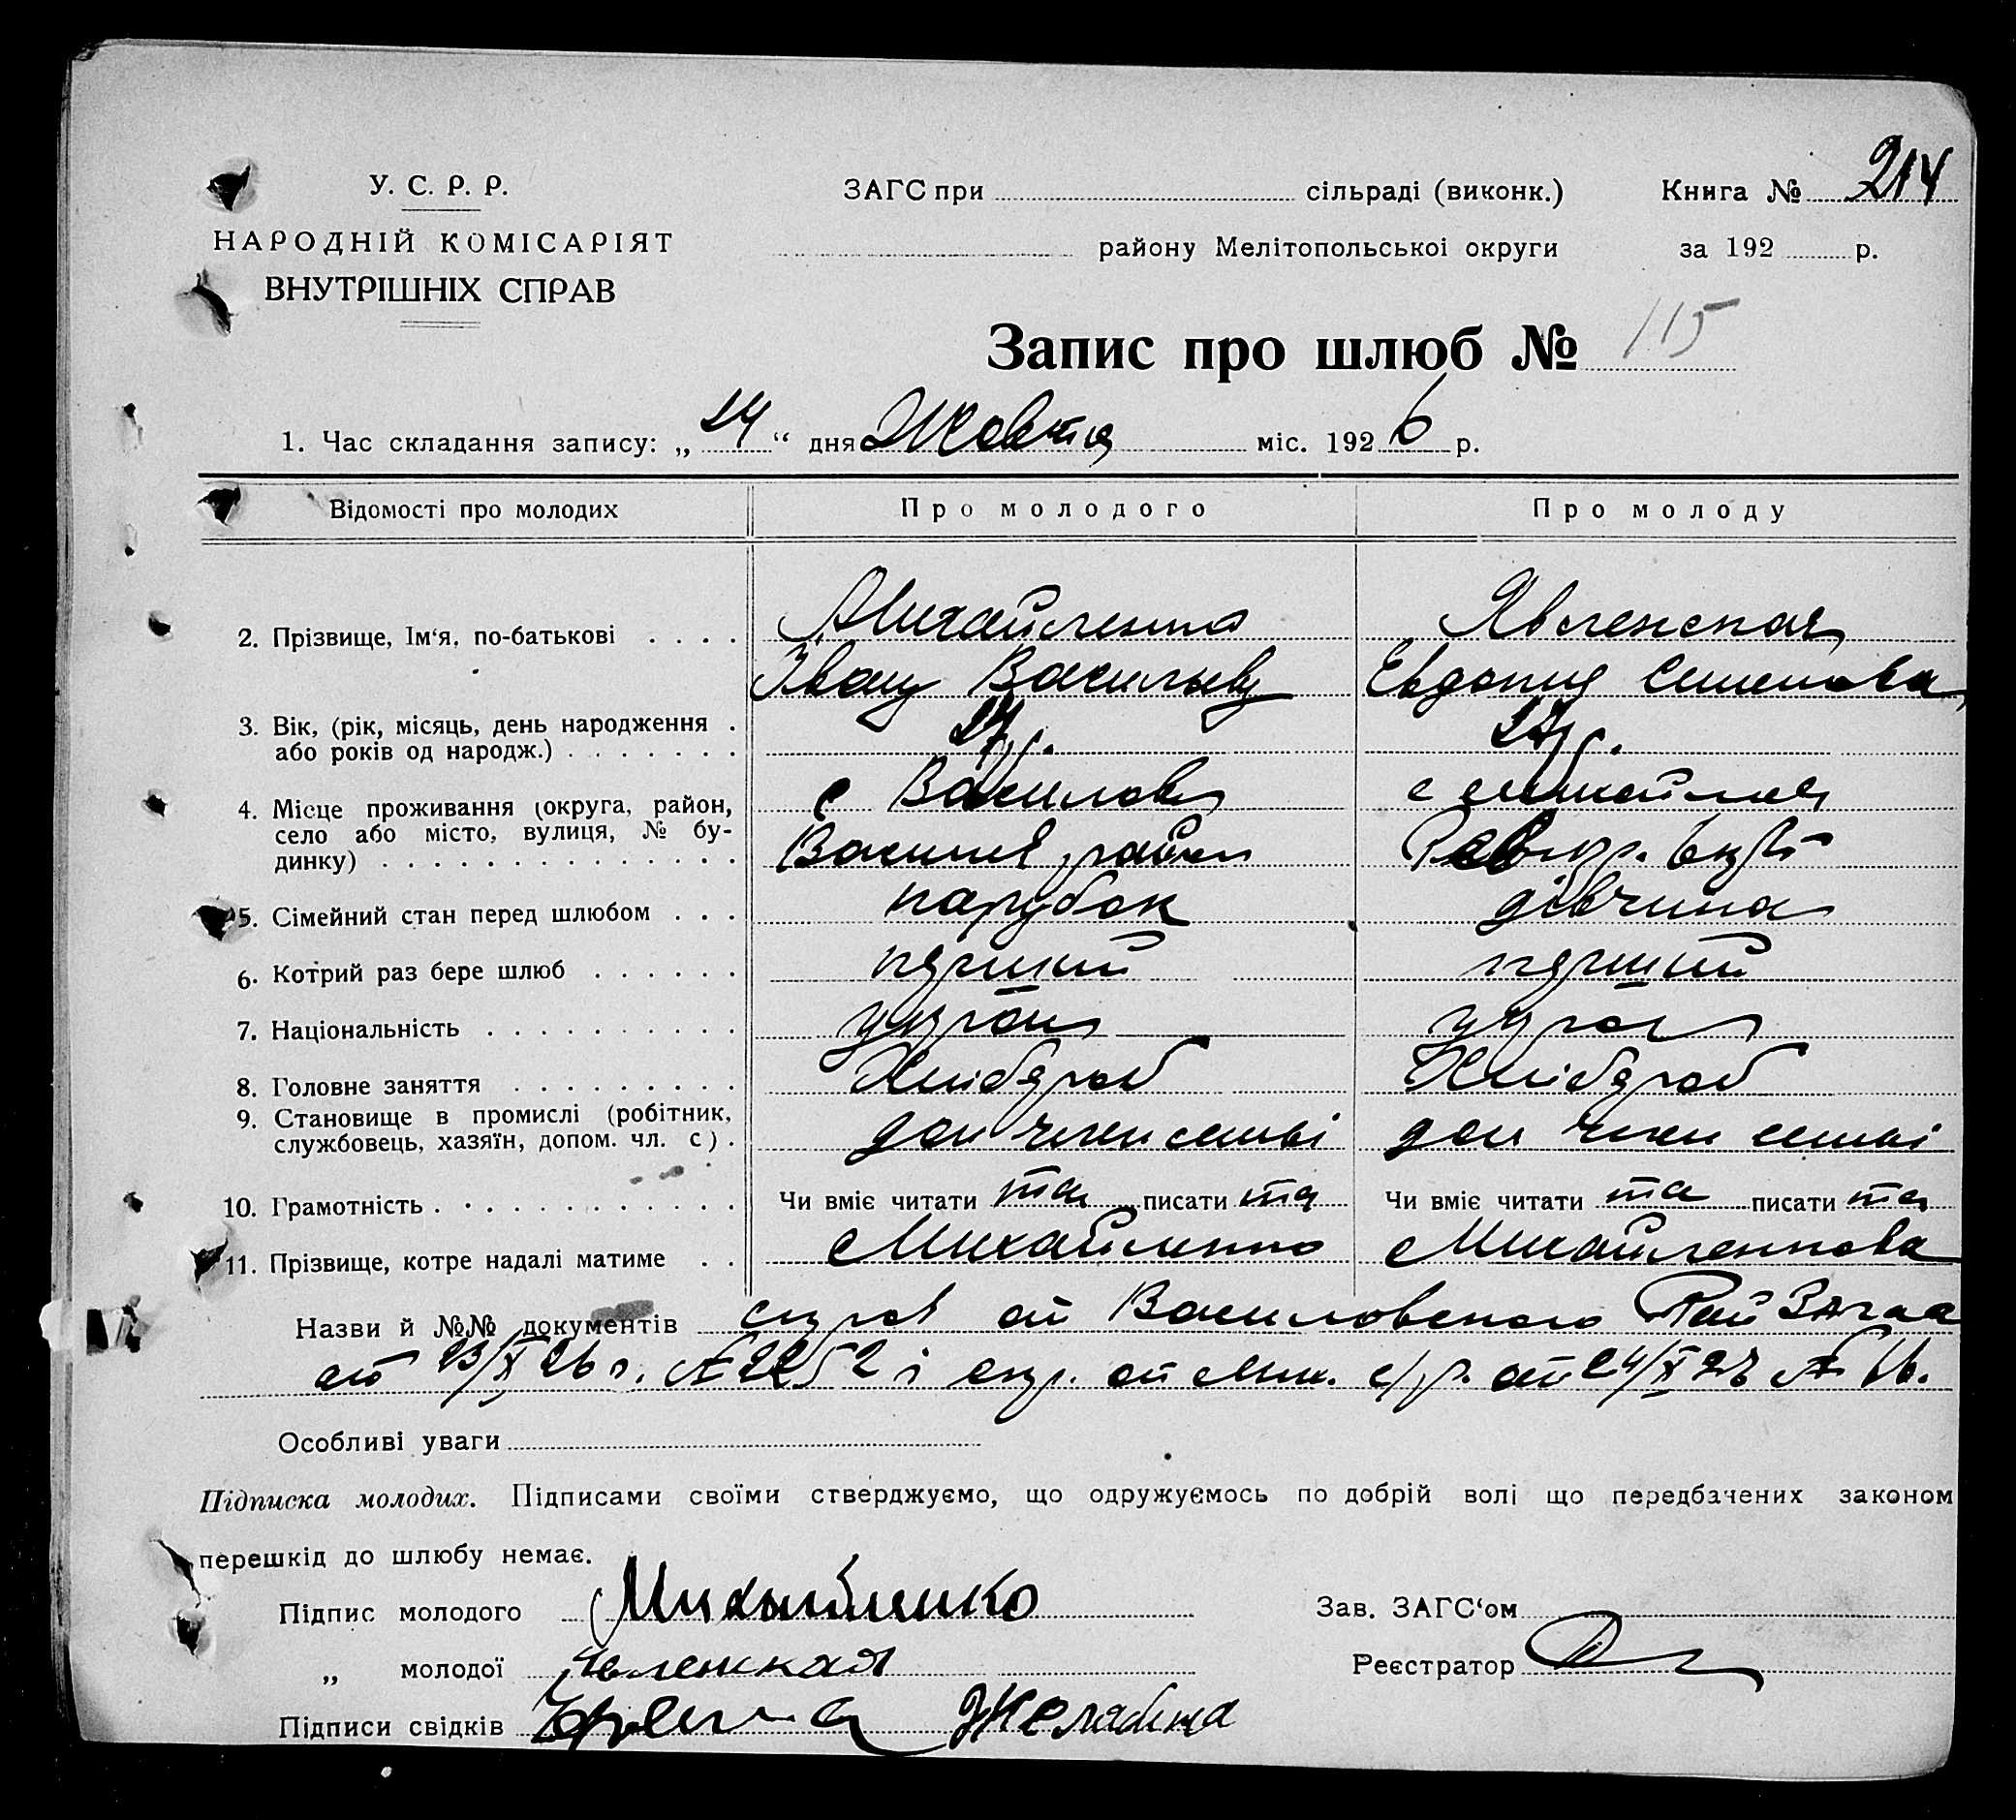 У. С. Р. Р.
НАРОДНІЙ КОМІСАРІЯТ
ВНУТРІШНІХ СПРАВ
ЗАГС при сільраді (виконк.)
району Мелітопольськоі округи
Книга № 214
за 192 р.
Запис про шлюб № 115
1. Час складання запису: „24“ дня Жовтня міс. 1926 р.
Відомості про молодих Про молодого Про молоду
2. Прізвище, Ім‘я, по-батькові Михайленко Явленская
Иван Васильев Евдокия Семенова
3. Вік, (рік, місяць, день народження
або років од народж.) р. р.
4. Місце проживання (округа, район, с Василов с Михайлов
село або місто, вулиця, № бу-
динку) Василів район
5. Сімейний стан перед шлюбом парубок дівчина
6. Котрий раз бере шлюб перший перший
7. Національність украін украін
8. Головне заняття Хлібороб Хлібороб
9. Становище в промислі (робітник,
службовець, хазяїн, допом. чл. с). доп член семьі доп член семьі
10. Грамотність Чи вміє читати так писати так Чи вміє читати так писати так
11. Прізвище, котре надалі матиме Михайленко Михайленкова
Назви й №№ документів от Василовского Рай Загса
от 23/X 26 г. № 2252 і от Мих. с/р. от 24/X
Особливі уваги
Підписка молодих. Підписами своїми стверджуємо, що одружуємось по добрій волі що передбачених законом
перешкід до шлюбу немає.
Підпис молодого Михайленко
Зав. ЗАГС‘ом
„ молодої Явленская
Реєстратор
Підписи свідків